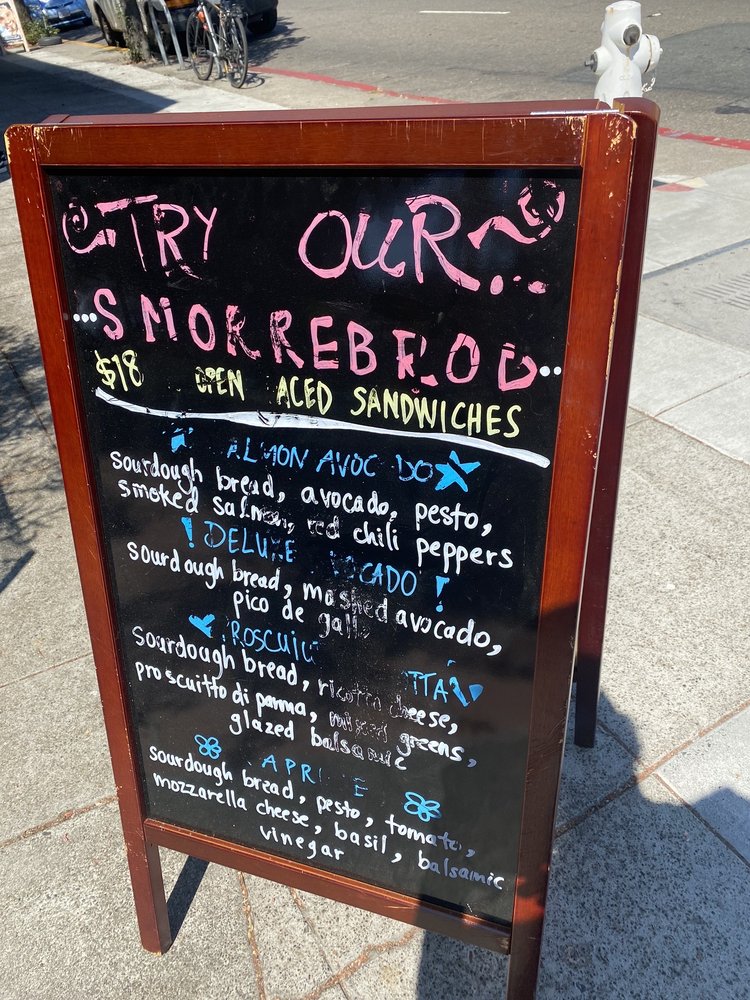 TRY OUR...
...SMORREBROD...
$18 OPEN ACED SANDWICHES
ALMON AVOC DO
sourdough bread, avocado, pesto,
smoked salmon, red chili peppers
! DELUXE OCADO !
sourdough bread, mashed avocado,
pico de gallo
ROSCIU TTA
sourdough bread, ricotta cheese,
proscuitto di parma, mixed greens,
glazed balsamic
APR E
sourdough bread, pesto, tomato,
mozzarella cheese, basil, balsamic
vinegar